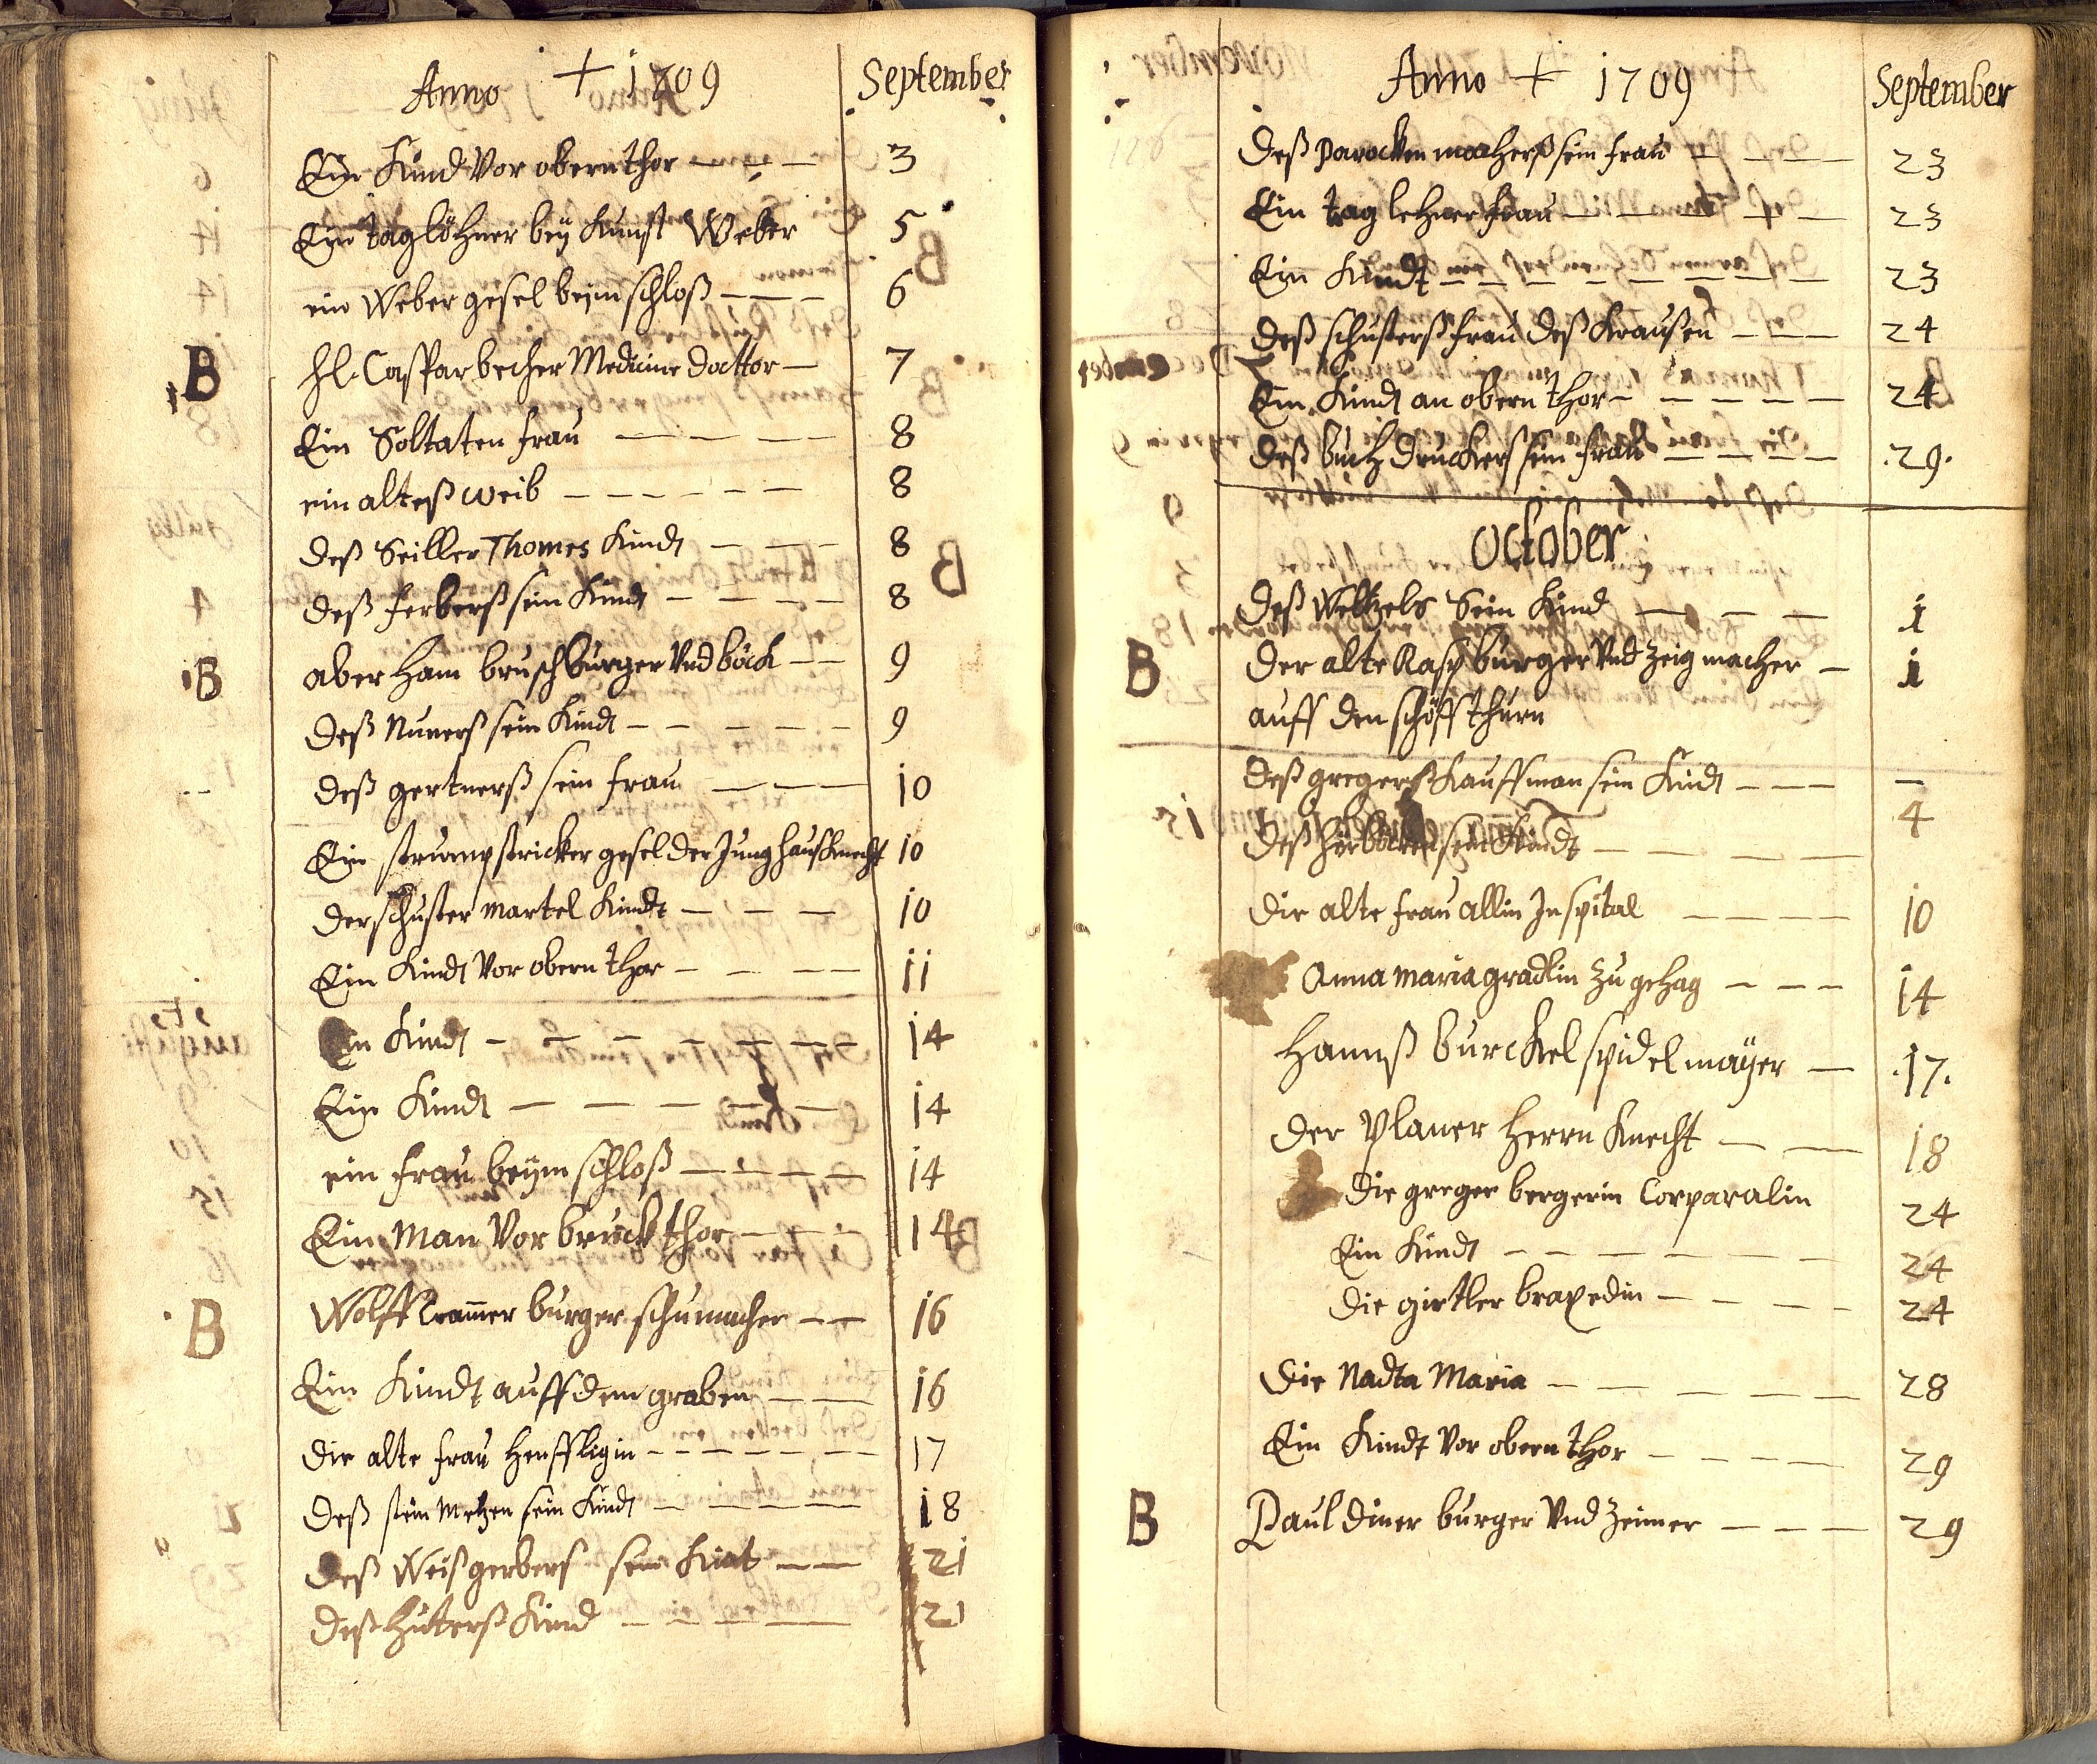 Anno + 1709 September
Ein Kind Vor obern thor — — — 3
Ein taglöhner beÿ Kunst Weber 5
ein Weber gesel beÿm schloß — — — 6
B hl. Caspar becher Medicine docttor — 7
Ein Soltaten frau — — — — 8
ein alteß weib — — — — — — 8
deß Seiller Thomes Kindt — — — 8
deß ferberß sein Kindt — — — — 8
B aber ham brusch burger Vnd böck — — 9
deß Nunerß sein Kindt — — — — — 9
deß gertnerß sein frau — — — 10
Ein strumpstricker gesel der Jung haußknecht 10
der schuster martel Kindt — — — 10
Ein Kindt Vor obern thor — — — — 11
Ein Kindt — — — — — — — 14
Ein Kindt — — — — — 14
ein frau beÿm schloß — — — — 14
Ein Man Vor bruck thor — — — 14
B Wolff Cramer burger schumacher — — 16
Ein Kindt auff dem graben — — 16
die alte frau henffligin — — — — — — 17
deß stein Metzen sein Kindt — — — — 18
deß Weißgerbers sein Kint — — 21
deß huterß Kind — — — — 21
Anno + 1709 September
deß parocken macherß sein frau — — — — 23
Ein tag lehner frau — — — — — 23
Ein Kindt — — — — — — — — 23
deß schusterß frau deß Krausen — — — 24
Ein Kindt an obern thor — — — — — 24
deß buch druckerß sein frau — — — — 29.
October
deß Weltzels Sein Kind — — — 1
B der alte Rasp burger Vnd zeig macher — 1
auff den schöff thurn
deß gregerß Kauffman sein Kindt — — — —
deß sein Kindt — — — — 4
die alte frau allin Inspital — — — — 10
Anna maria gradlin zu gehag — — — 14
Hannß burckel spidelmaÿer — 17.
der planer herrn Knecht — — 18
die greger bergerin Corparalin 24
Ein Kindt — — — — — — — 24
die girtler braxedin — — — — — 24
die Nadta Maria — — — — — 28
Ein Kindt Vor obern thor — — — — 29
B Paul diner burger Vnd Zeimer — — — 29